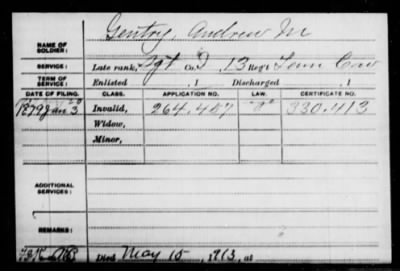 Gentry, Andrew M
NAME OF SOLDIER:
SERVICE: Late rank, Sgt Co. D, 13 Reg't Tenn Cav
TERM OF SERVICE: Enlisted , 1 Discharged , 1
DATE OF FILING. CLASS. APPLICATION NO. LAW. CERTIFICATE NO.
1879 Jan 3 Invalid, 264.457 330.413
Widow,
Minor,
ADDITIONAL SERVICES:
REMARKS:
Died May 15, 1913, at